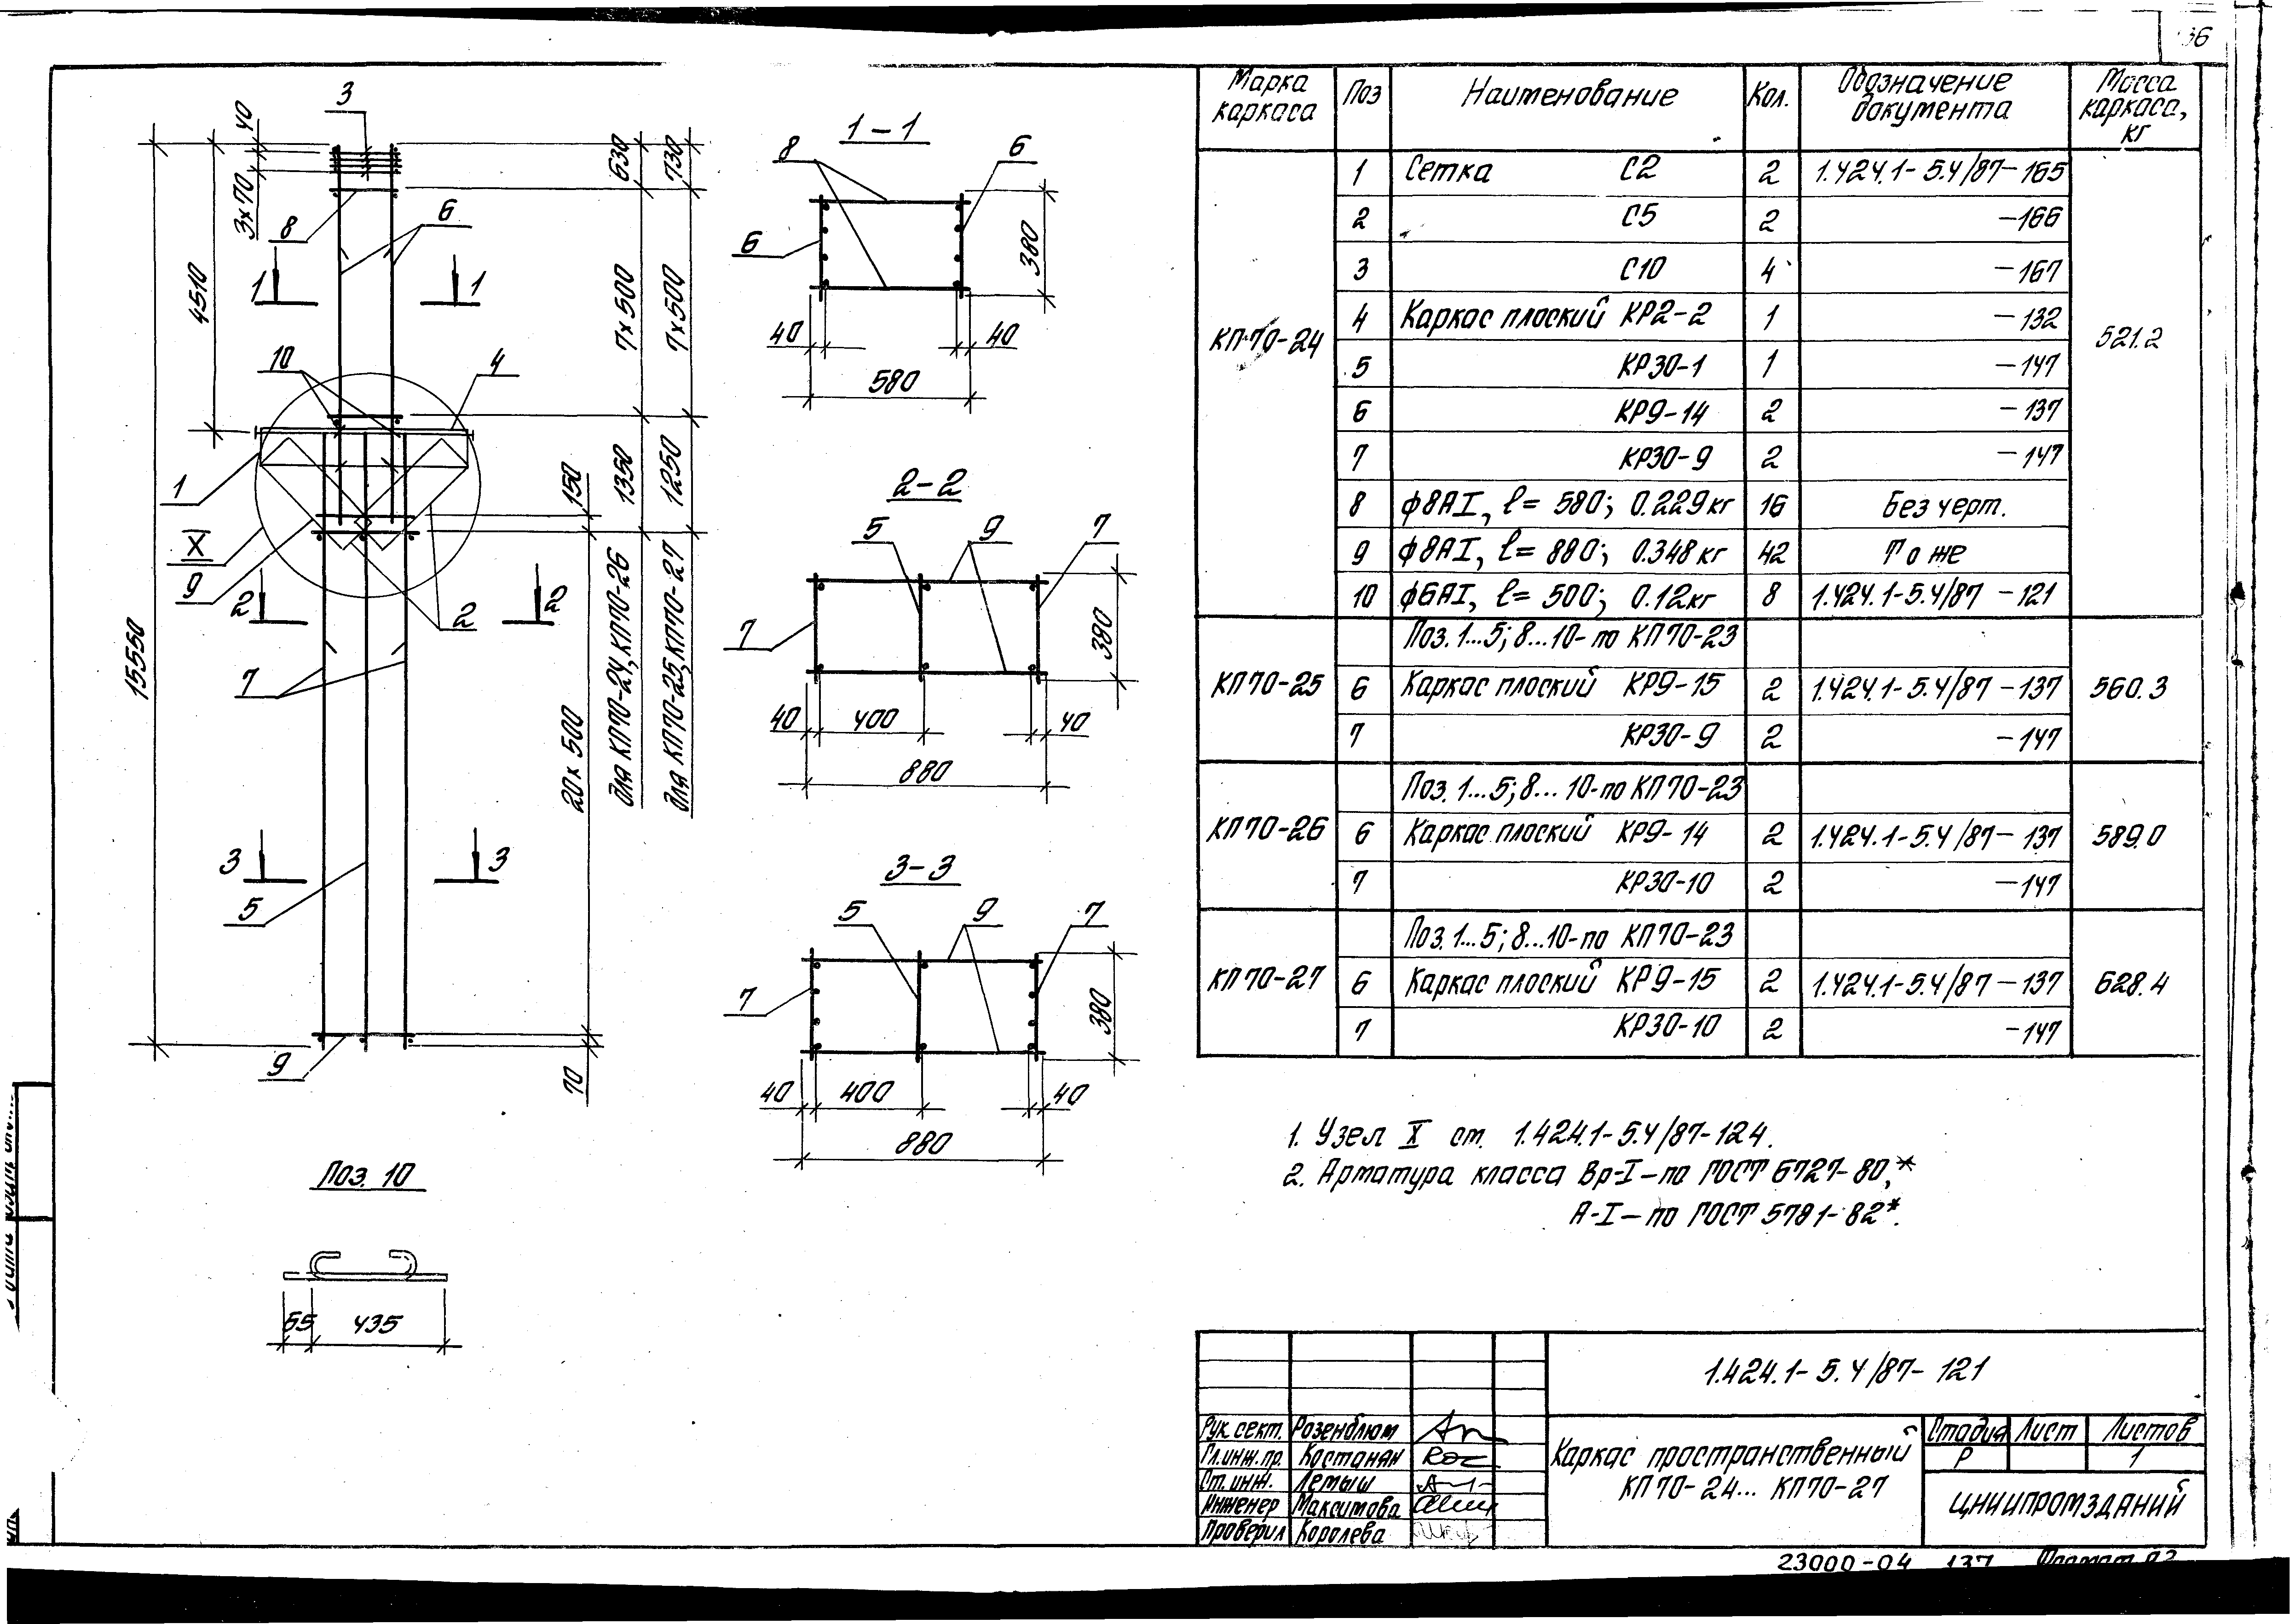 36
3
40
3×70
630
730
8
6
1
1
4510
7×500
7×500
10
4
1
150
1350
1250
X
9
2
2
2
15550
7
20×500
для КП70-24, КП70-26
для КП70-25, КП70-27
3
3
5
9
70
1-1
8
6
6
380
40
40
580
2-2
5
9
7
7
380
40
400
40
880
3-3
5
9
7
7
380
40
400
40
880
Поз. 10
65
435
Марка каркаса Поз Наименование Кол. Обозначение документа Масса каркаса, кг
КП70-24 521.2
1 Сетка С2 2 1.424.1-5.4/87-165
2 С5 2 -166
3 С10 4 -167
4 Каркас плоский КР2-2 1 -132
5 КР30-1 1 -147
6 КР9-14 2 -137
7 КР30-9 2 -147
8 ф8АI, ℓ=580; 0.229кг 16 Без черт.
9 ф8АI, ℓ=880; 0.348кг 42 То же
10 ф6АI, ℓ=500; 0.12кг 8 1.424.1-5.4/87-121
Поз. 1...5; 8...10-по КП70-23
КП70-25 6 Каркас плоский КР9-15 2 1.424.1-5.4/87-137 560.3
7 КР30-9 2 -147
Поз. 1...5; 8...10-по КП70-23
КП70-26 6 Каркас плоский КР9-14 2 1.424.1-5.4/87-137 589.0
7 КР30-10 2 -147
Поз. 1...5; 8...10-по КП70-23
КП70-27 6 Каркас плоский КР9-15 2 1.424.1-5.4/87-137 628.4
7 КР30-10 2 -147
1. Узел X см. 1.424.1-5.4/87-124.
2. Арматура класса Вр-I-по ГОСТ 6727-80,*
А-I-по ГОСТ 5781-82*.
1.424.1-5.4/87-121
Рук. сект. Розенблюм
Гл. инж. пр. Костанян
Ст. инж. Лемыш
Инженер Максимова
Проверил Королева
Каркас пространственный
КП70-24... КП70-27
Стадия Лист Листов
Р 1
ЦНИИПРОМЗДАНИЙ
23000-04 137 Формат А3